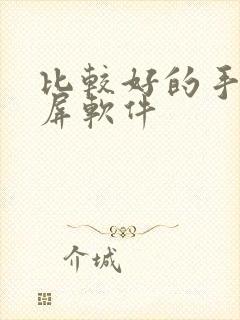 比較好的手
屏軟件
介城